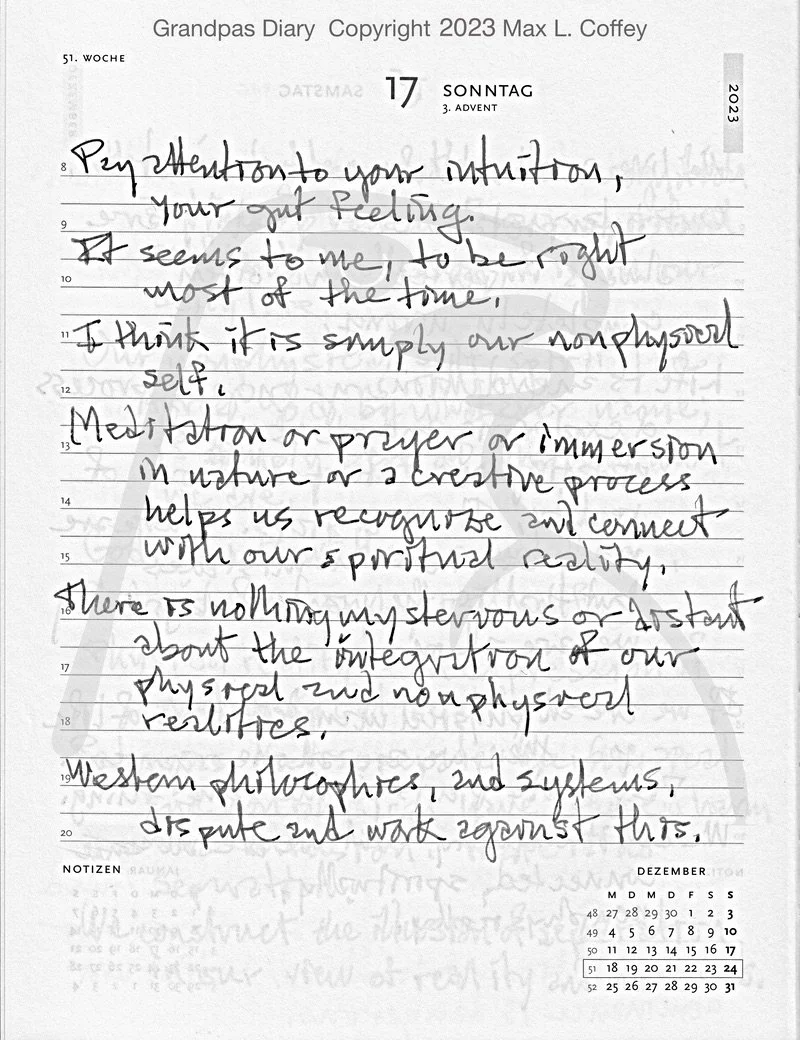 Grandpas Diary Copyright 2023 Max L. Coffey
51. WOCHE
17 SONNTAG
3. ADVENT
2023
8 Pay attention to your intuition,
your gut feeling.
9
It seems to me, to be right
10
most of the time.
11 I think it is simply our nonphysical
self.
12
Meditation or prayer or immersion
13
in nature or a creative process
14
helps us recognize and connect
15 with our spiritual reality.
There is nothing mysterious or distant
16
about the integration of our
17
physical and nonphysical
18 realities.
19 Western philosophies, and systems,
20 dispute and work against this.
NOTIZEN
DEZEMBER
M D M D F S S
48 27 28 29 30 1 2 3
49 4 5 6 7 8 9 10
50 11 12 13 14 15 16 17
51 18 19 20 21 22 23 24
52 25 26 27 28 29 30 31